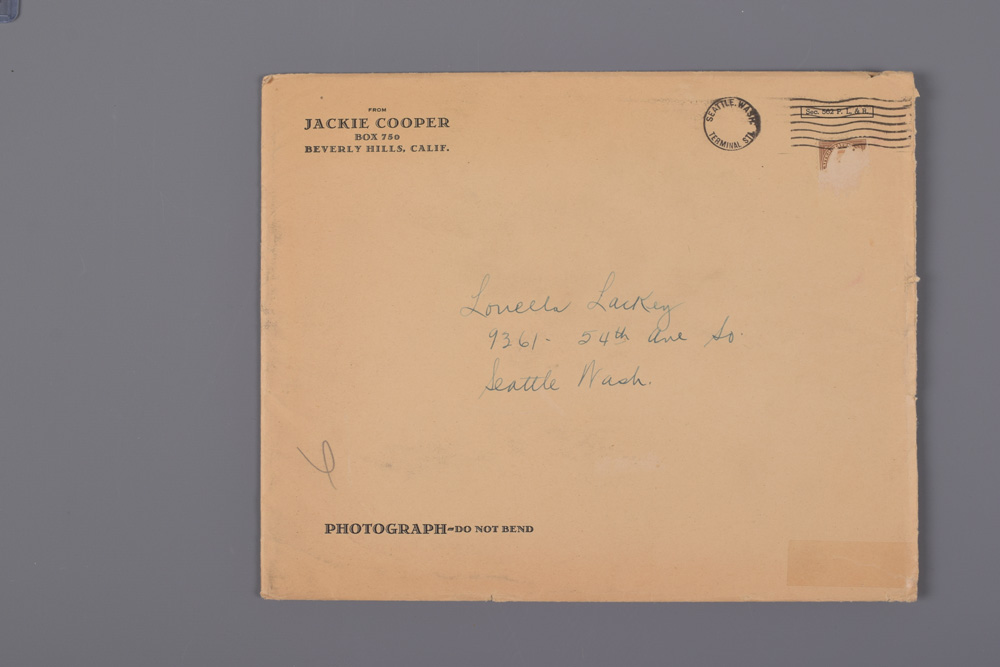 FROM
JACKIE COOPER
BOX 750
BEVERLY HILLS, CALIF.
SEATTLE, WASH.
TERMINAL STA.
Sec. 562 P. L. & R.
Louella Lackey
9361- 54th Ave So.
Seattle Wash.
PHOTOGRAPH-DO NOT BEND